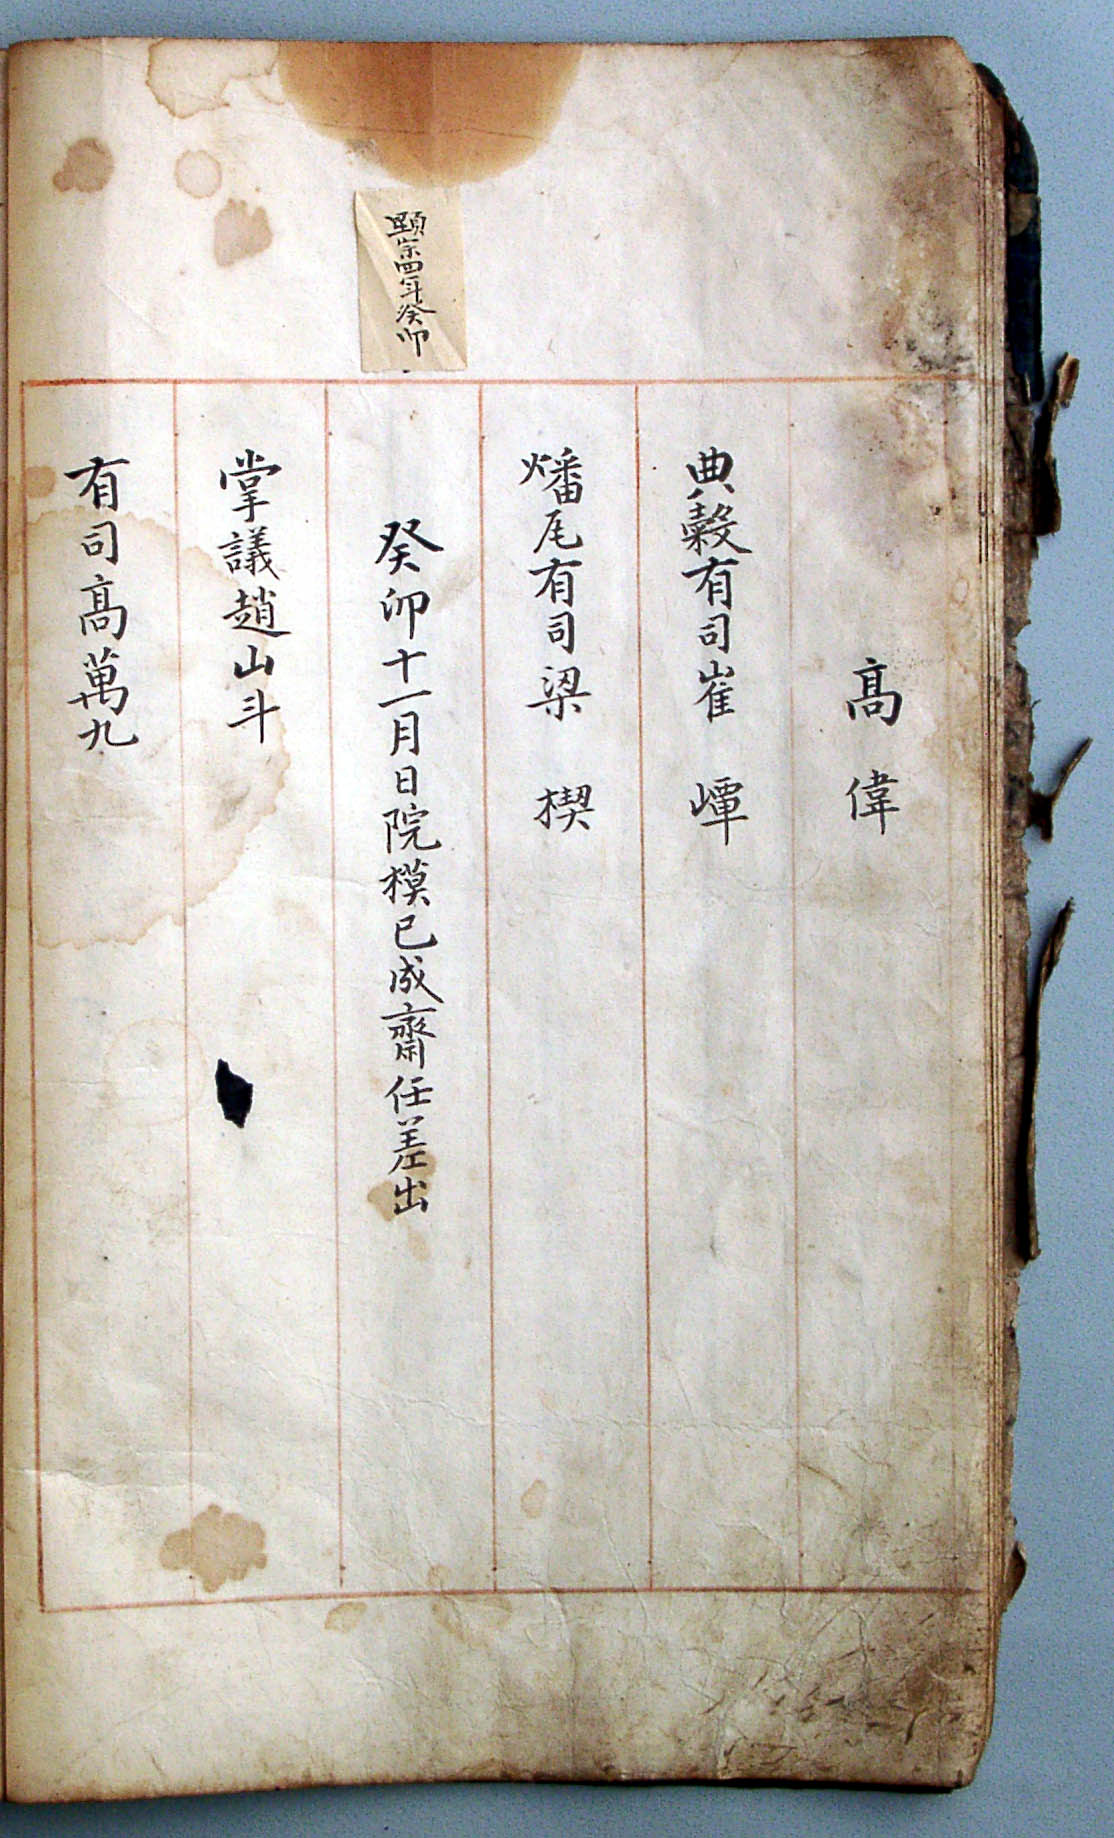 高 偉
典穀有司崔 嶂
燔瓦有司梁 楔
顯宗四年癸卯
癸卯十一月日院模已成齋任差出
掌議趙山斗
有司高萬九